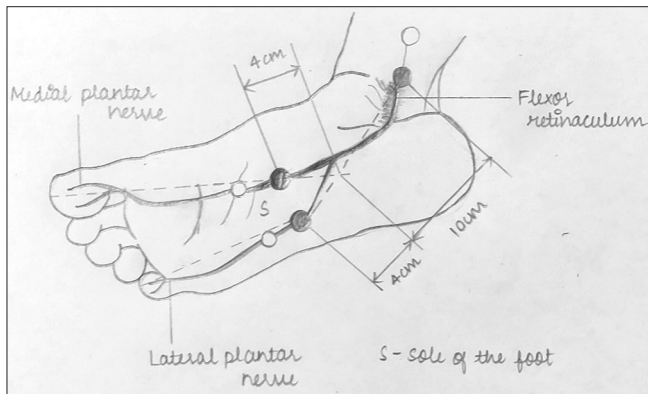 4cm
Medial plantar
nerve
Flexor
retinaculum
S
10cm
4cm
Lateral plantar
nerve
S - sole of the foot